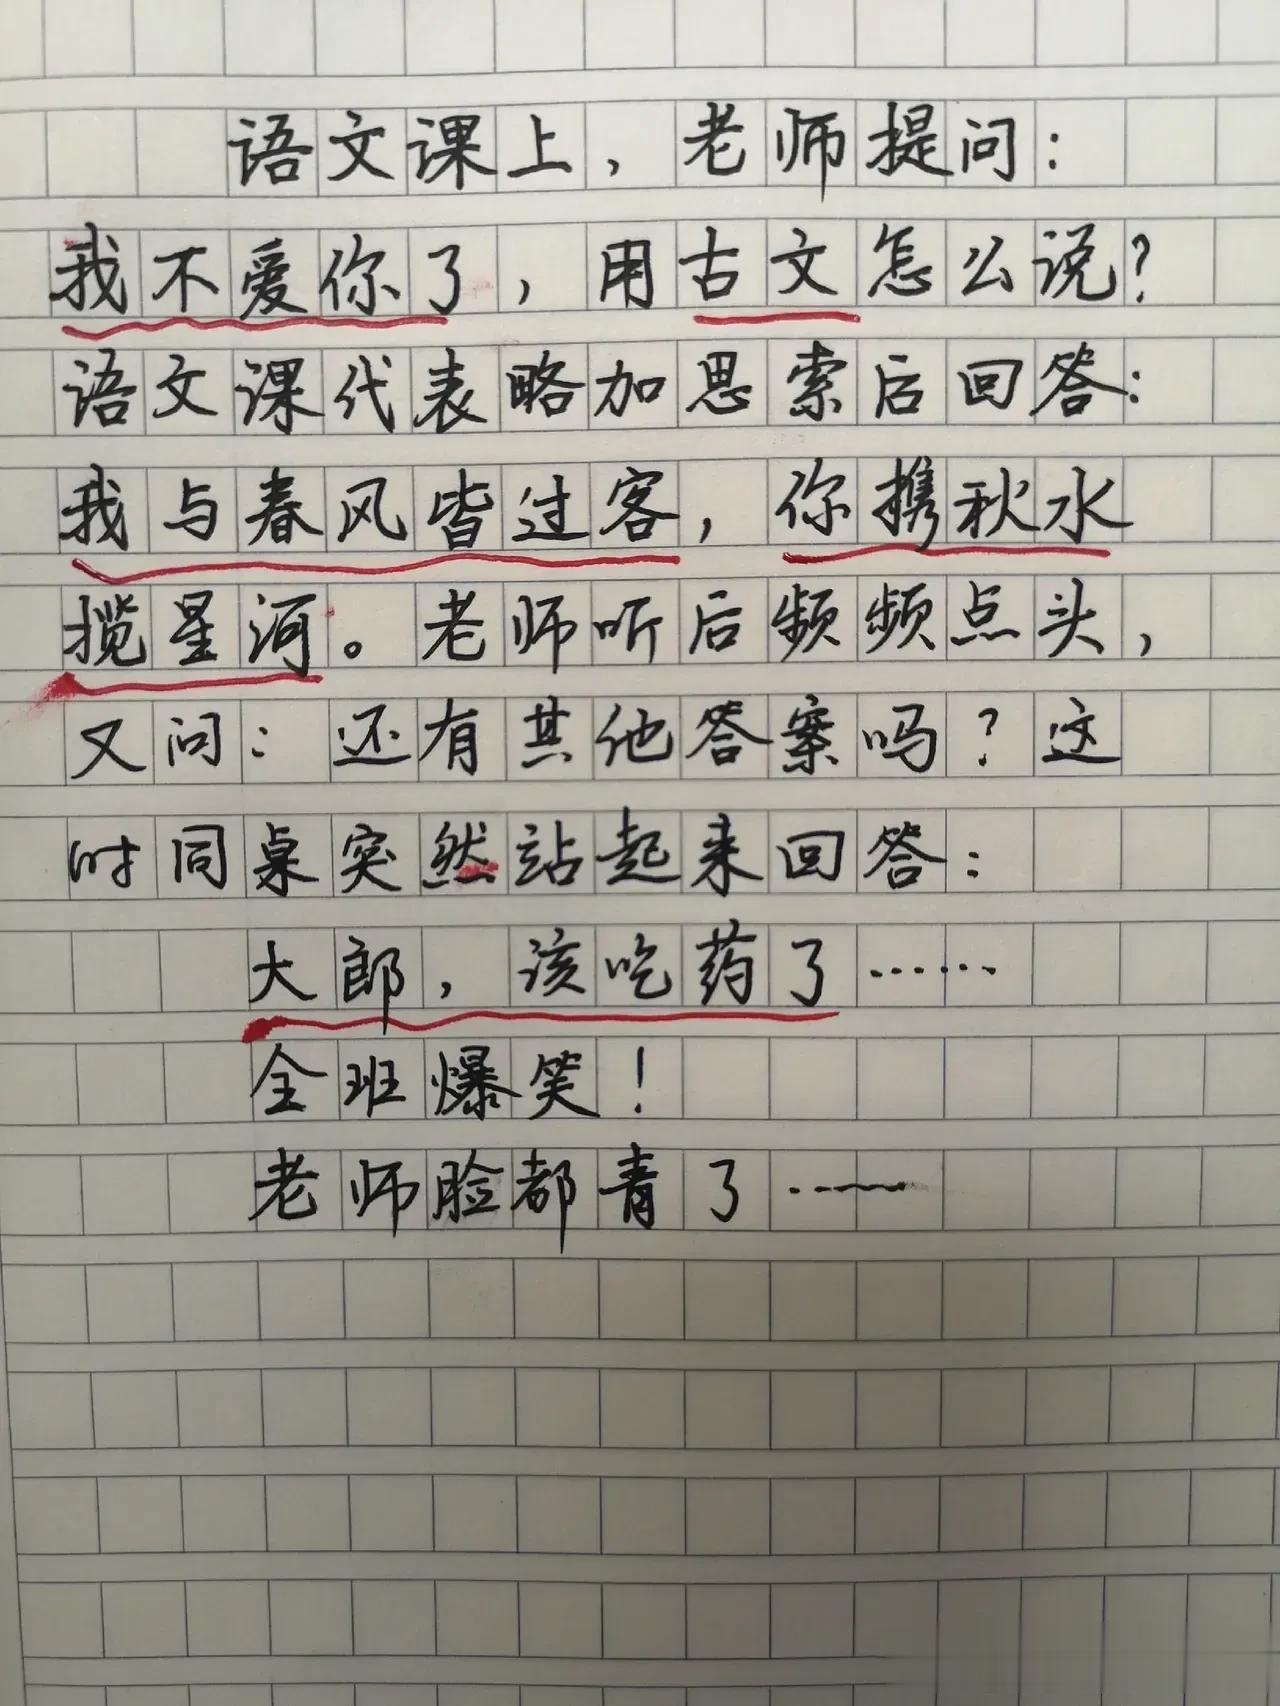 语文课上，老师提问：
我不爱你了，用古文怎么说？
语文课代表略加思索后回答：
我与春风皆过客，你携秋水
揽星河。老师听后频频点头，
又问：还有其他答案吗？这
时同桌突然站起来回答：
大郎，该吃药了……
全班爆笑！
老师脸都青了……